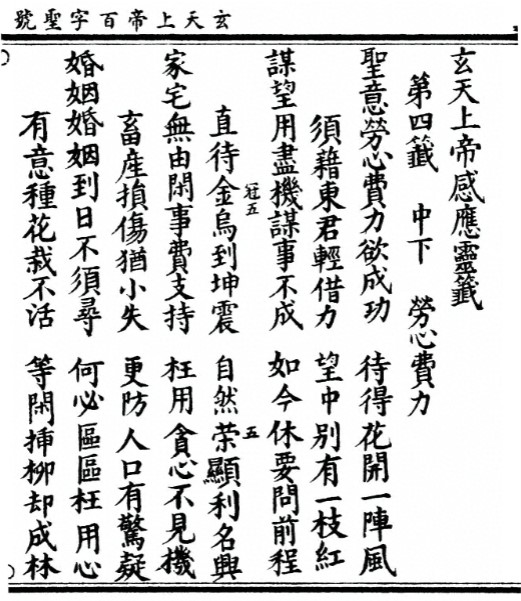 玄天上帝百字聖號
玄天上帝感應靈籤
第四籤 中下 勞心費力
聖意勞心費力欲成功 待得花開一陣風
須藉東君輕借力 望中別有一枝紅
謀望用盡機謀事不成 如今休要問前程
冠五 五
直待金烏到坤震 自然荣顯利名興
家宅無由閑事費支持 枉用貪心不見機
畜産損傷猶小失 更防人口有驚疑
婚姻婚姻到日不須尋 何必區區枉用心
有意種花栽不活 等閑揷柳却成林